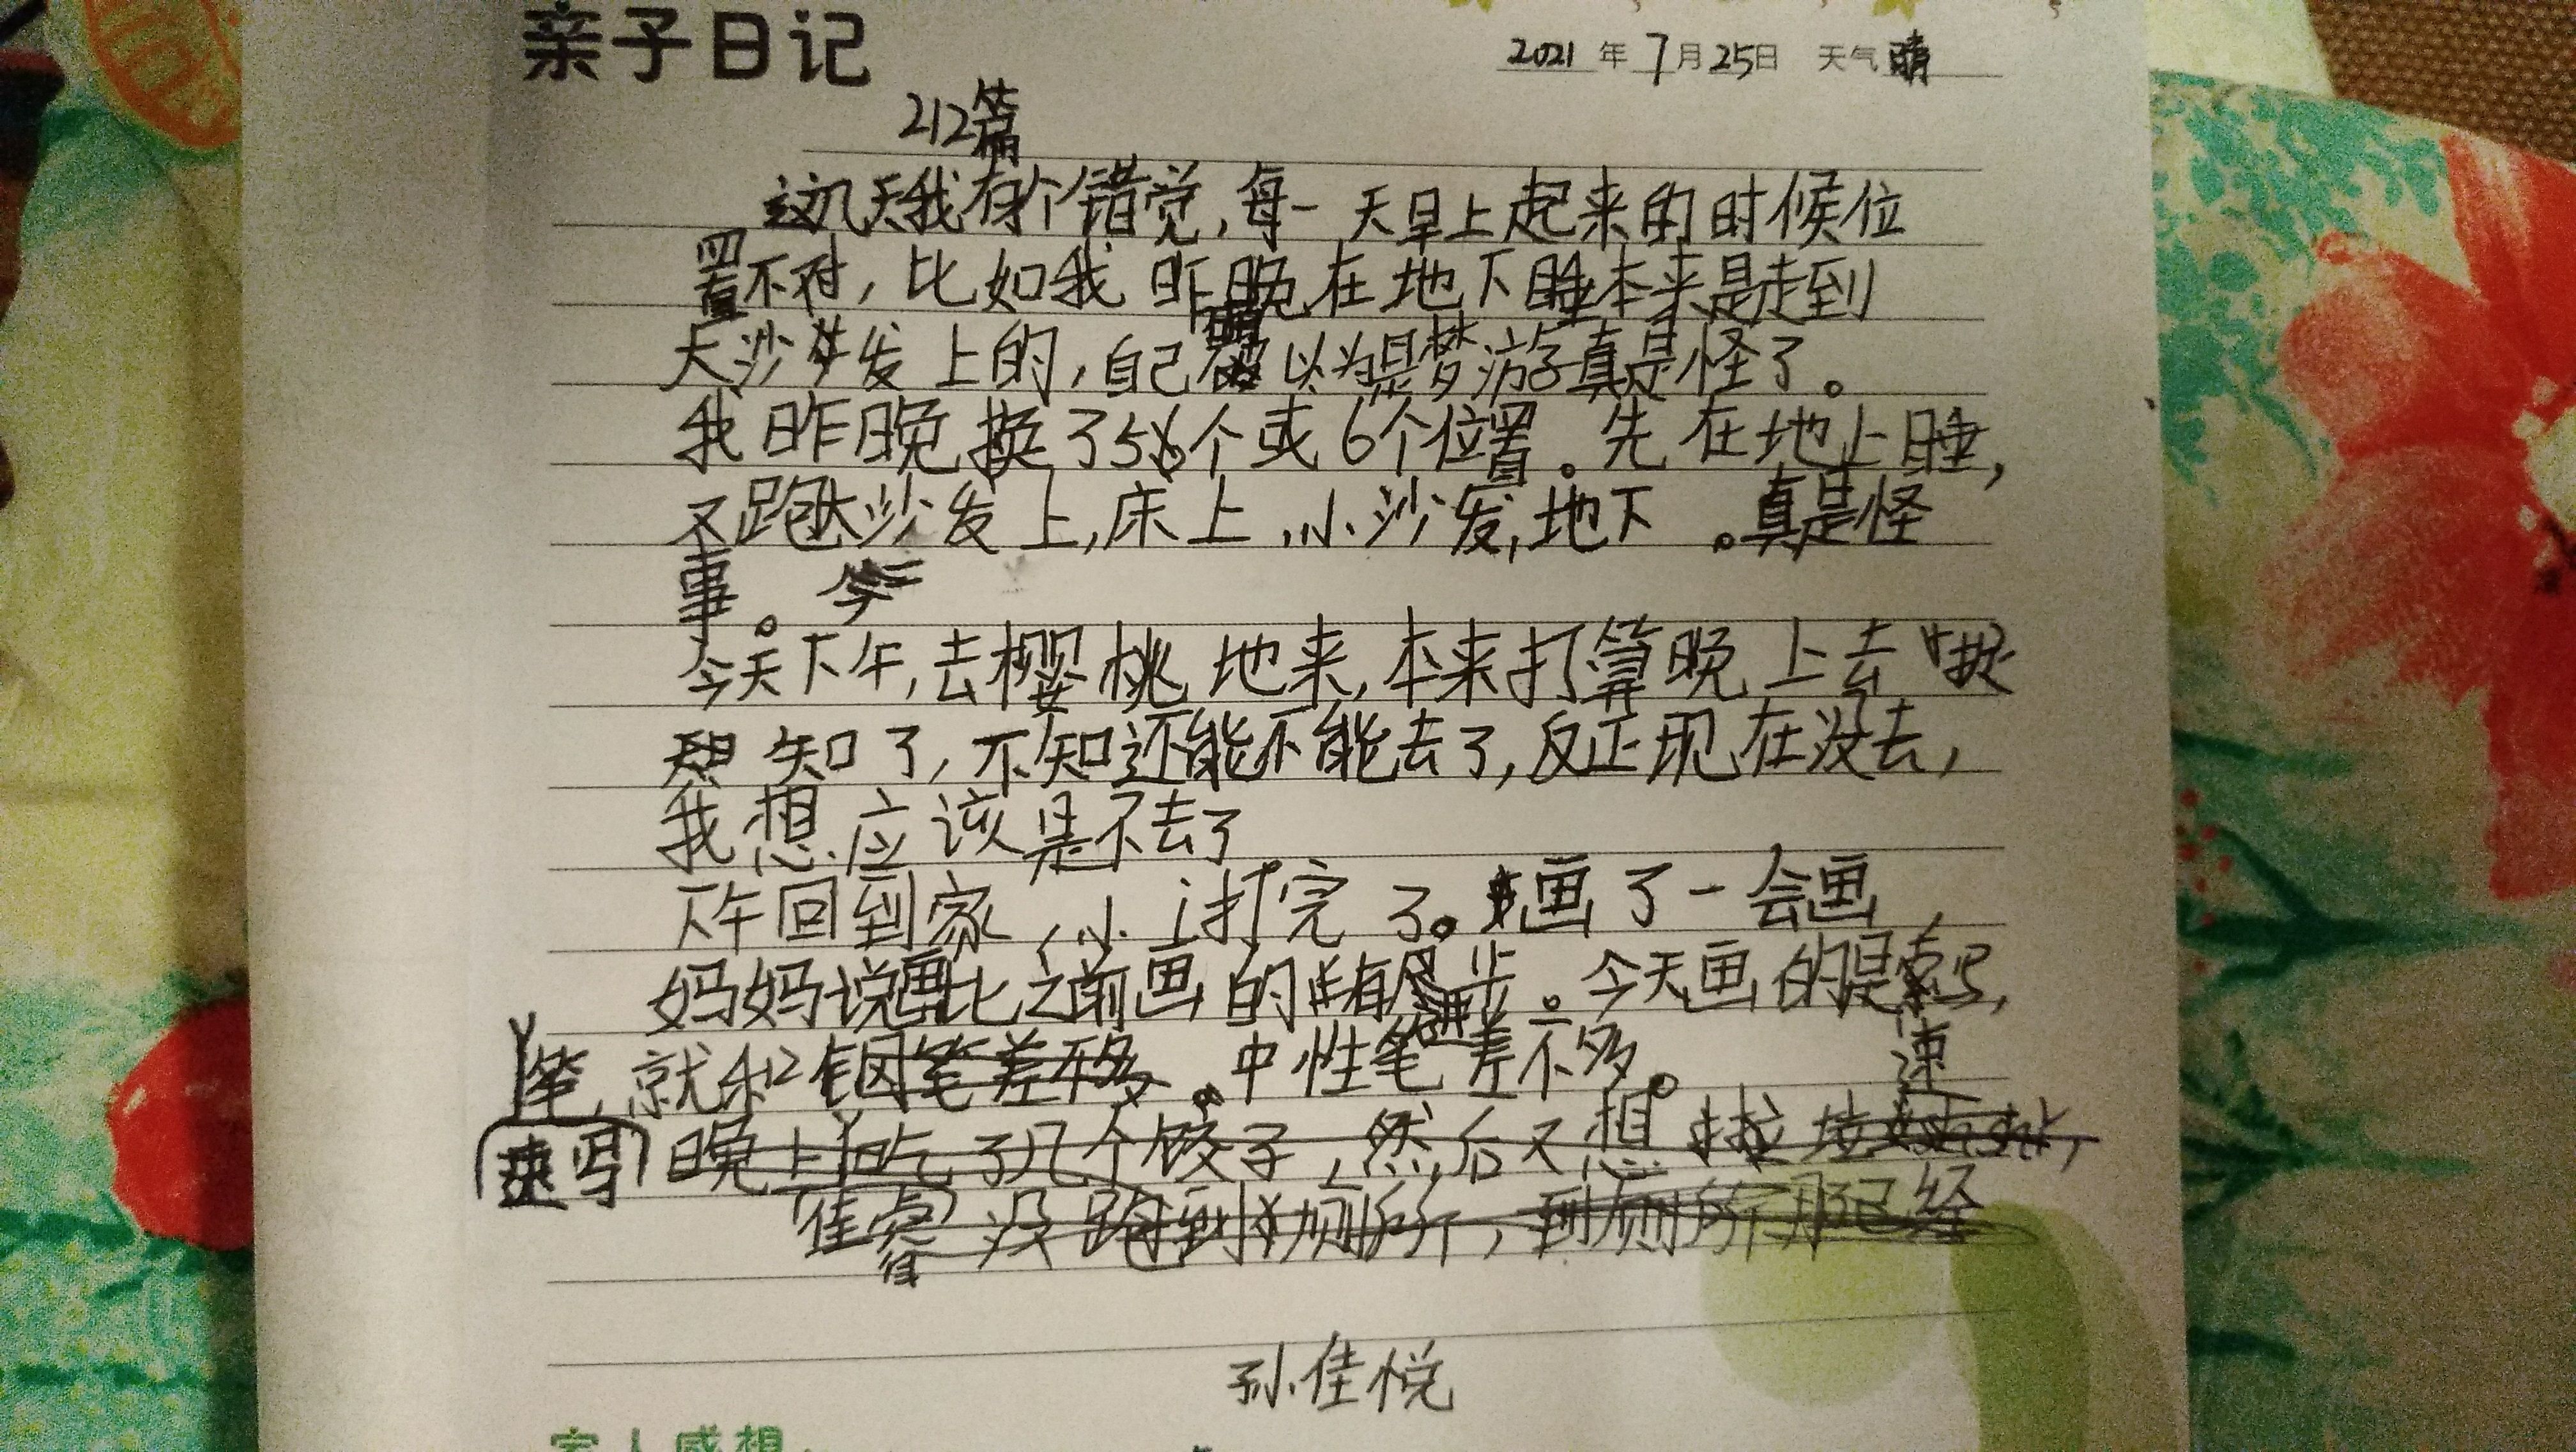 亲子日记
2021年7月25日 天气晴
212篇
这几天我有个错觉,每一天早上起来的时候位
置不对,比如我昨晚在地下睡本来是走到
大沙发上的,自己以为是梦游真是怪了。
我昨晚换了5个或6个位置。先在地上睡,
又跑大沙发上,床上,小沙发,地下。真是怪
事。
今天下午,去樱桃地来,本来打算晚上去
知了,不知还能不能去了,反正现在没去,
我想应该是不去了
下午回到家,小打完了。画了一会画
妈妈说画比之前画的有进步。今天画的是速
笔,就和中性笔差不多。
速写
晚上吃了几个饺子,然后又想拉
佳睿没跑到厕所,到厕所已经
孙佳悦
家人感想: